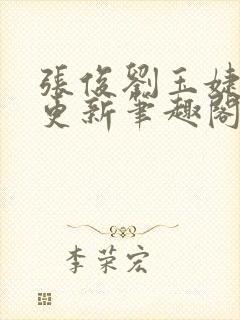 張俊劉玉婕
更新筆趣閣
李荣宏